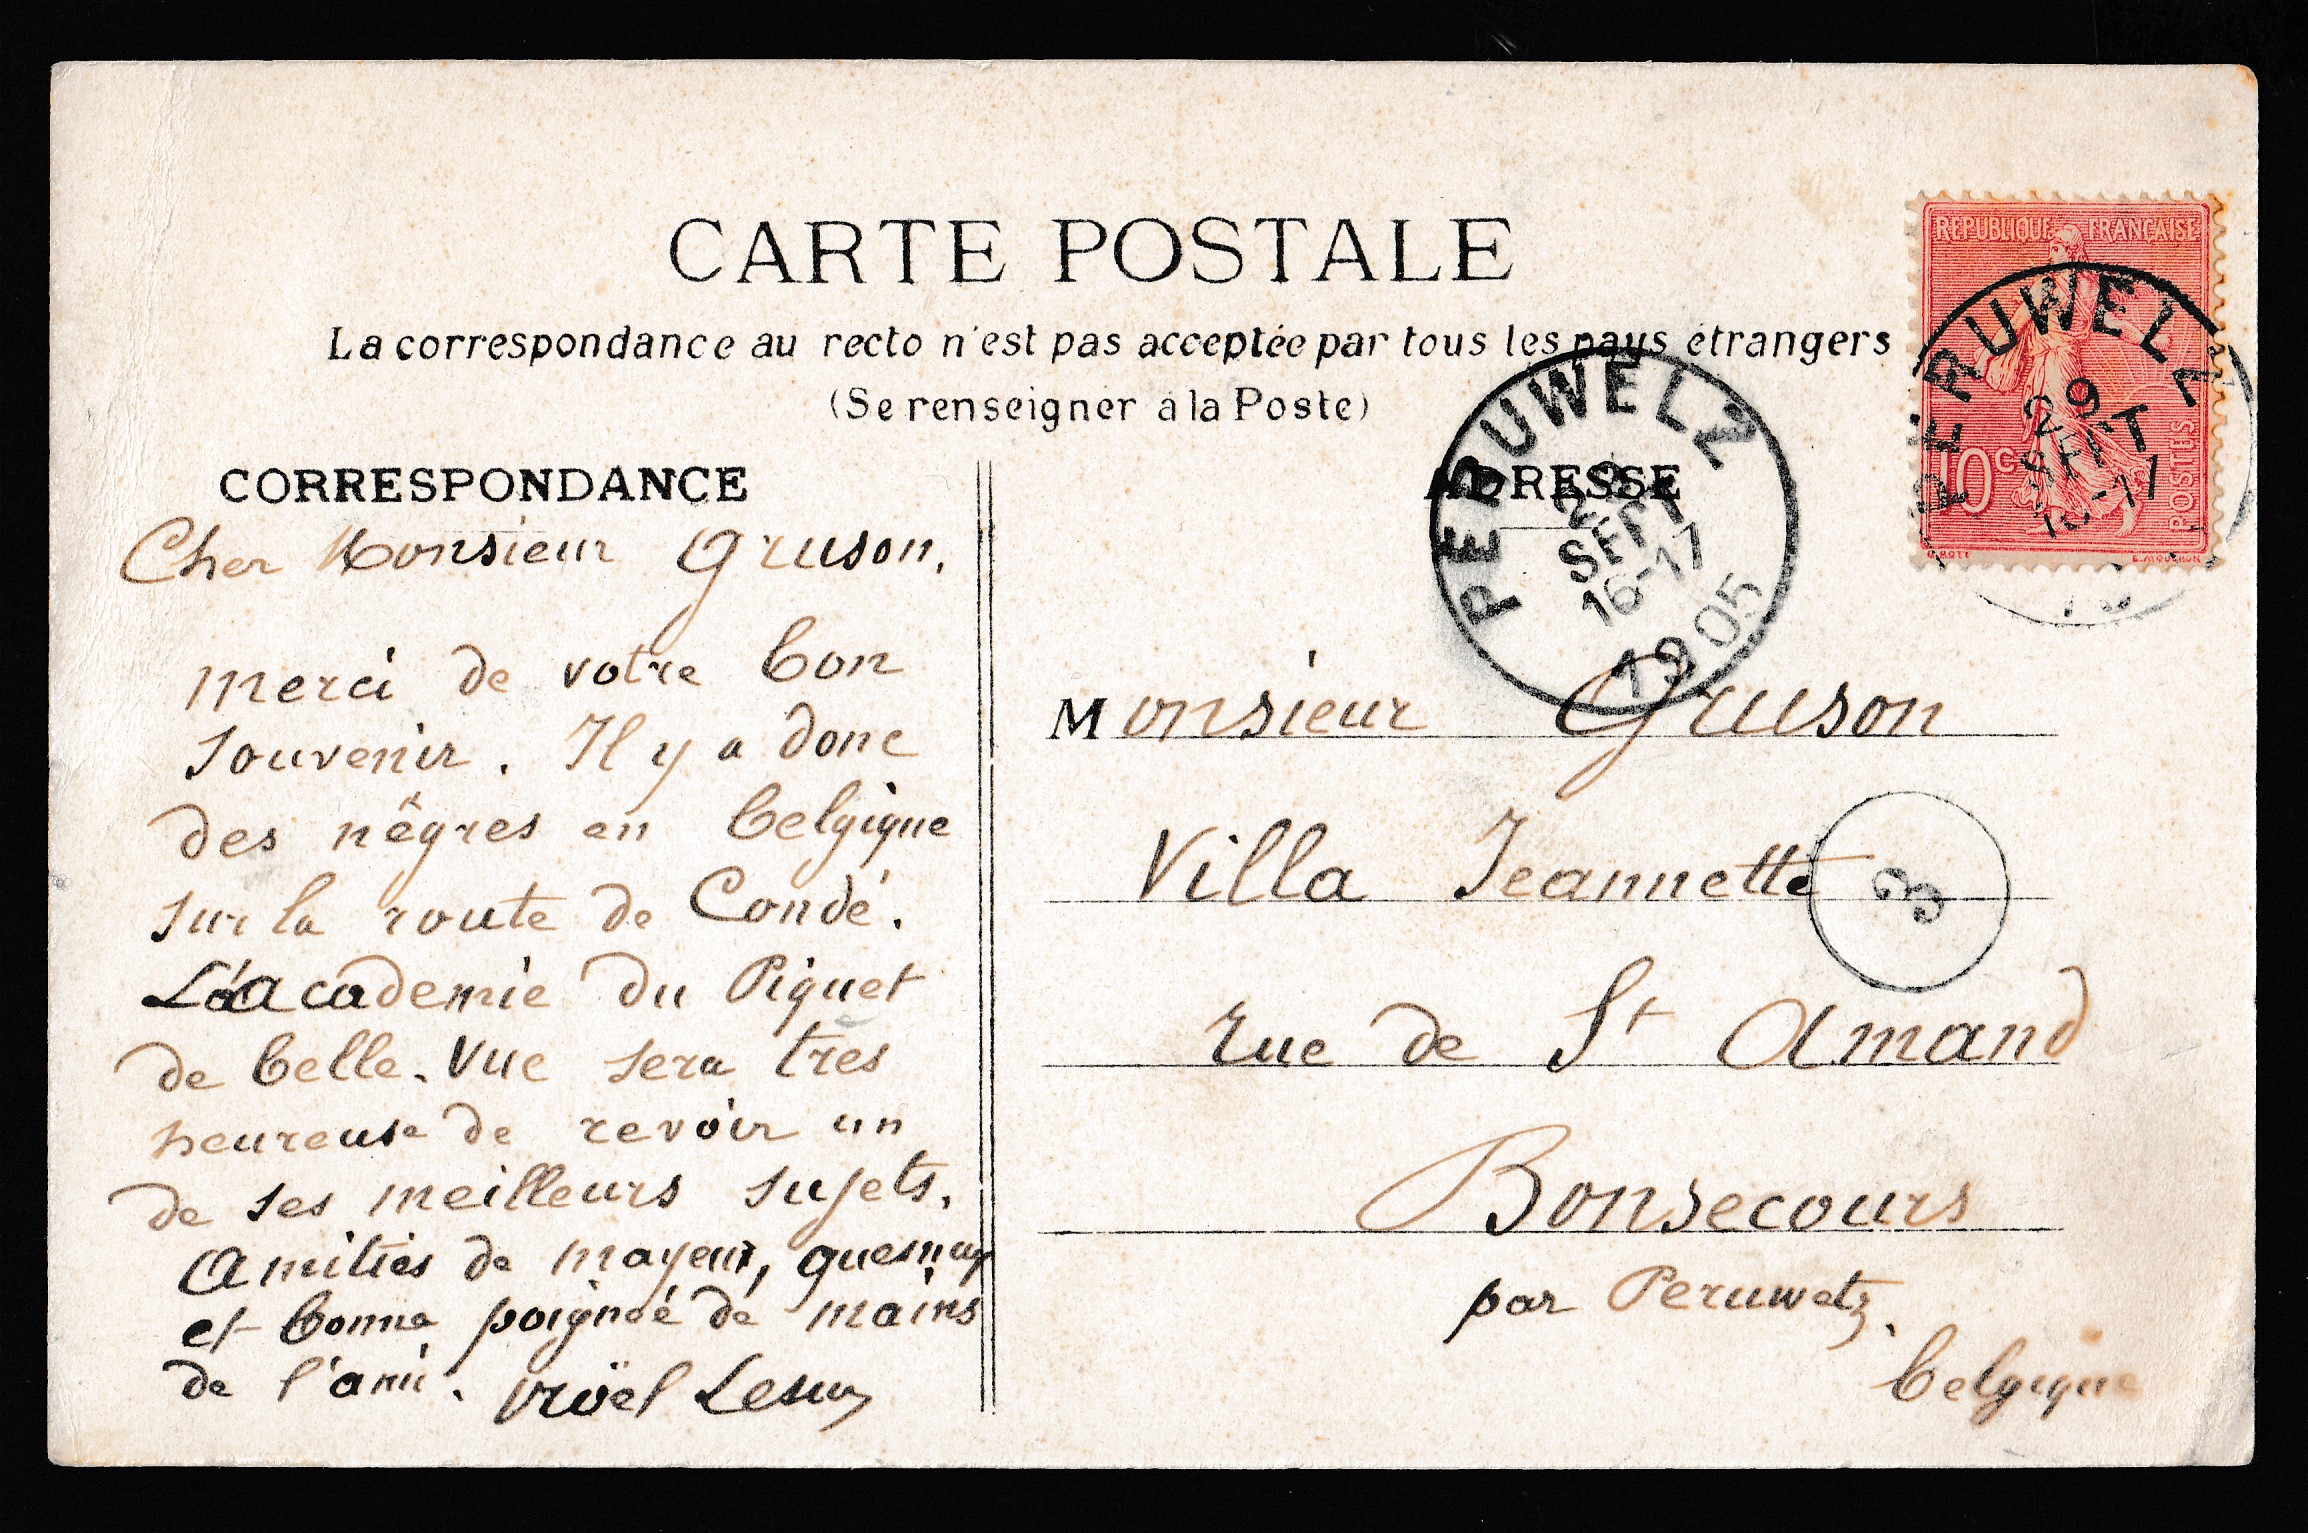 CARTE POSTALE
La correspondance au recto n'est pas acceptée par tous les pays étrangers
(Se renseigner à la Poste)
REPUBLIQUE FRANÇAISE
10c
POSTES
O. ROTY
E. MOUCHON
PERUWELZ
29
SEPT
16-17
PERUWELZ
29
SEPT
16-17
1905
CORRESPONDANCE
Cher Monsieur Gruson,
Merci de votre bon
souvenir. Il y a donc
des nègres en belgique
sur la route de Condé.
L'academie du Piquet
de belle-Vue sera très
heureuse de revoir un
de ses meilleurs sujets.
Amitiés de mayeur, quesnay
et bonne poignée de mains
de l'ami. Noël Lesur
ADRESSE
Monsieur Gruson
Villa Jeannette
3
rue de St Amand
Bonsecours
par Peruwelz.
belgique